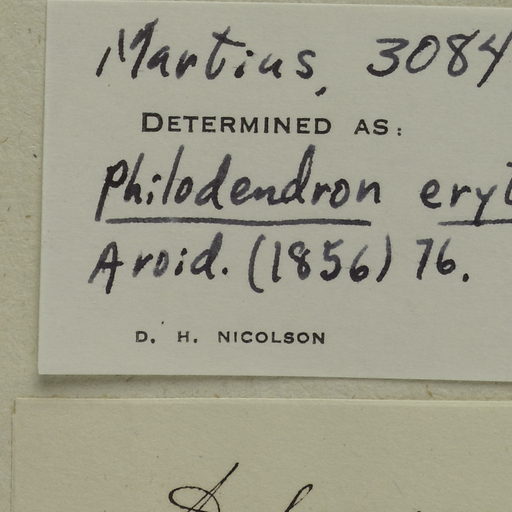 Martius, 3084
DETERMINED AS:
Philodendron eryt
Aroid. (1856) 76.
D. H. NICOLSON